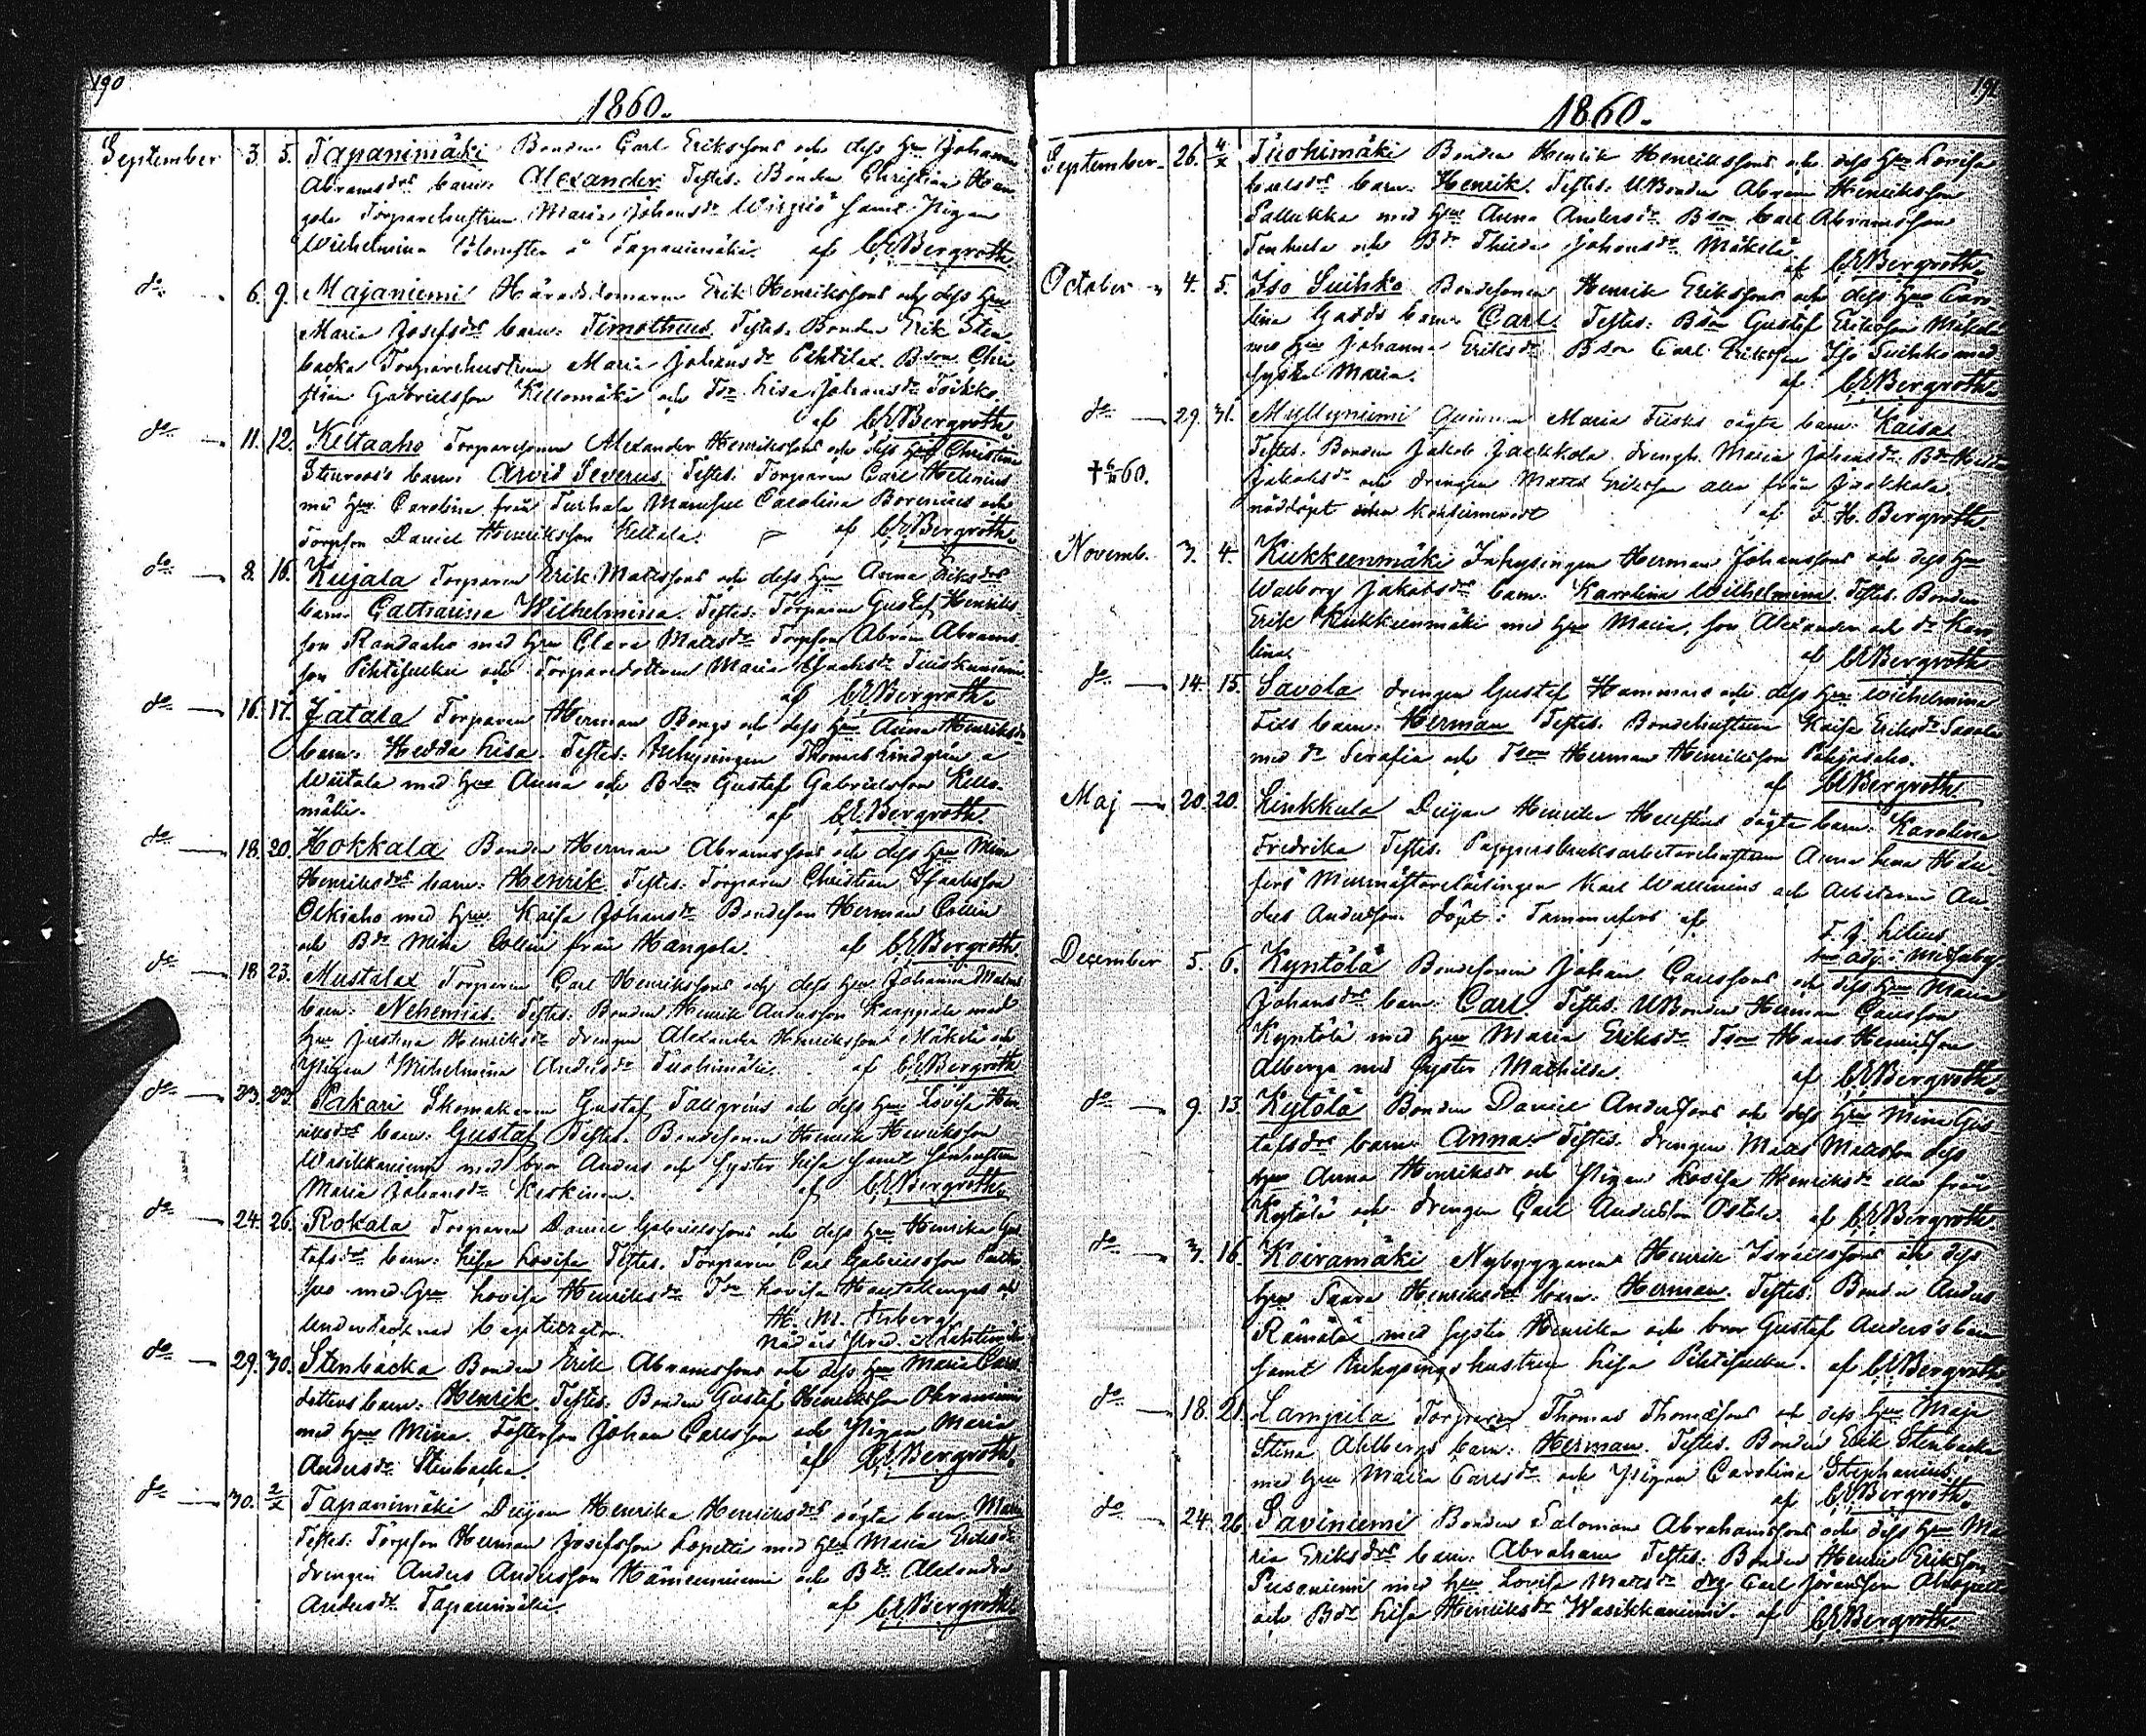 190
1860.
September 3. 5. Tapanimäki Bonden Carl Erikssons och dess hu Johanna
Abramsdrs barn: Alexander Testes: Bonden Christian Han
gola Torparehustrun Maria Johansdr samt Pigan
Wilhelmina å Tapanimäki. af C.E.Bergroth.
do 6. 9. Majaniemi Häradsdomaren Erik Henrikssons och dess hu
Maria Josefsdrs barn: Timotheus. Testes. Bonden Erik Sten
backa Torparehustrun Maria Johansdr B.son Chri
stian Gabrielsson Kellomäki och Lisa Johansdr
af C.E.Bergroth.
do 11. 12. Keltaaho Torparesonen Alexander Henrikssons och dess hu Christina
Stenroos's barn: Arvid Severus. Testes: Torparen Carl Hellenius
med hu Carolina från Turhala Mamsell Carolina Borenius och
Torpson Daniel Henriksson Keltala. af C.E.Bergroth.
do 8. 16. Kujala Torparen Erik Matssons och dess hu Anna Eriksdrs
barn: Catharina Wilhelmina. Testes: Torparen Gustaf Henriks
son Randaaho med hu Clara Matsdr Torpson Abram Abrams
son och Torparedottern Maria Isaksdr
af C.E.Bergroth.
do 16. 17. Jatala Torparen Herman Bongs och dess hu Anna Henriksdrs
barn: Hedda Lisa. Testes: Inhysingen Thomas Lindgren a
Wiitala med hu Anna och B.son Gustaf Gabrielsson Kello
mäki. af C.E.Bergroth.
do 18. 20. Hokkala Bonden Herman Abramssons och dess hu Mina
Henriksdrs barn: Henrik. Testes: Torparen Christian Isaksson
Olkiaho med hu Kaisa Johansdr Bondeson Herman Collin
och B.dr Mina Collin från Hangola. af C.E.Bergroth.
do 18 23. Mustalax Torparen Carl Henrikssons och dess hu Johanna
barn: Nehemias. Testes: Bonden Henrik Andersson med
hu Justina Henriksdr drengen Alexander Henriksson Mäkelä och
Pigan Wilhelmina Andersdr Tuohimäki. af C.E.Bergroth
do 23. 23. Pakari Skomakaren Gustaf Tallgréns och dess hu Lovisa Hen
riksdrs barn: Gustaf Testes. Bondesonen Henrik Henriksson
Wasikkaniemi med bror Anders och syster Lisa samt
Maria Johansdr Keskinen. af C.E.Bergroth.
do 24. 26. Rokala Torparen Daniel Gabrielssons och dess hu Henrika Gus
tafsdrs barn: Lisa Lovisa Testes. Torparen Carl Gabrielsson
med hu Lovisa Henriksdr Lovisa
Undertecknad
do 29. 30. Stenbacka Bonden Erik Abramssons och dess hu Maria Carls
dotters barn: Henrik. Testes. Bonden Gustaf Henriksson
med hu Mina. Fosterson Johan Carlsson och Pigan Maria
Andersdr Stenbacka. af C.E.Bergroth.
do 30. 2/x Tapanimäki Pigan Henrika Henriksdrs oägta barn
Testes: Torpson Herman Josefsson Lopetti med hu Maria Eriksdr
drengen Anders Andersson och B.dr Alexandra
Andersdr Tapanimäki. af C.E.Bergroth.
191
1860.
September 26. 4/x Tuohimäki Bonden Henrik Henrikssons och dess hu Lovisa
Carlsdrs barn: Henrik. Testes. UBonden Abram Henriksson
Pallukka med hu Anna Andersdr B.son Carl Abramsson
och B.dr Johansdr Mäkelä
af C.E.Bergroth.
October 4. 5. Iso Suihko Bondesonen Henrik Erikssons och dess hu Caro
lina Gadds barn Carl. Testes: B.son Gustaf Eriksson Mäkelä
med hu Johanna Eriksdr B.son Carl Eriksson Iso Suihko med
syster Maria. af C.E.Bergroth.
do 29. 31. Myllyniemi Qvinnan Maria oägta barn: Kaisa
† 60. Testes. Bonden Jakob Jaakkola. drengh. Maria Johansdr
Jakobsdr och drengen Matts Eriksson alla från Jaakkola.
nöddöpt af F. H. Bergroth
Novemb. 3. 4. Kukkeenmäki Inhysingen Herman Johanssons och dess hu
Walborg Jakobsdrs barn: Karolina Wilhelmina. Testes. Bonden
Erik Kukkeenmäki med hu Maria, son Alexander och dr Karo
lina af C.E.Bergroth
do 14. 15. Savola drengen Gustaf och dess hu Wilhelmina
barn: Herman Testes. Bondehustrun Kaisa Eriksdr Savola
med dr Serafia och Herman Henriksson Pohjasaho.
af C.E.Bergroth.
Maj 20. 20. Linkkula Pigan Henrika oägta barn: Karolina
Fredrika Testes. Pappersbruksarbetarehustrun Anna Lena
Karl Wallenius och Arbetaren An
ders Andersson. döpt i Tammerfors af
F. J. Lilius
December 5. 6. Kyntölä Bondesonen Johan Carlssons och dess hu Maria
Johansdrs barn: Carl. Testes. UBonden Herman Carlsson
Kyntölä med hu Maria Eriksdr Hans Henriksson
Alberga med syster Mathilda. af C.E.Bergroth.
do 9. 13. Kytölä Bonden Daniel Anderssons och dess hu Mina Gus
tafsdrs barn Anna. Testes. drengen Matts Mattsson dess
hu Anna Henriksdr och Pigan Lovisa Henriksdr alla från
Kytölä och drengen Carl Andersson af C.E.Bergroth.
do 3. 16. Koiramäki Nybyggaren Henrik Israelssons och dess
hu Saara Henriksdrs barn: Herman. Testes. Bonden Anders
Rämälä med syster Henrika och bror Gustaf Anders's barn
samt Inhysingshustrun Lisa af C.E.Bergroth.
do 18. 21. Lampila Torparen Thomas Thomassons och dess hu Maja
Stina Ahlbergs barn: Herman. Testes. Bonden Erik Stenbacka
med hu Maria Carlsdr och Pigan Carolina Stephanius.
af C.E.Bergroth.
do 24. 26. Saviniemi Bonden Salomon Abrahamssons och dess hu Ma
ria Eriksdrs barn: Abraham Testes: Bonden Henrik Eriksson
Pusaniemi med hu Lovisa Matsdr drg Carl
och B.dr Lisa Henriksdr Wasikkaniemi. af C.E.Bergroth.